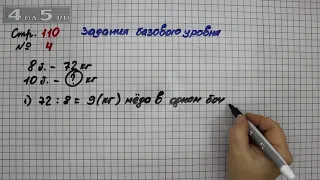 4 из 5.ru
Стр. 110 Задания базового уровня
№ 4
8 б. - 72 кг
10 б. - ? кг
1) 72 : 8 = 9 (кг) мёда в одном боч